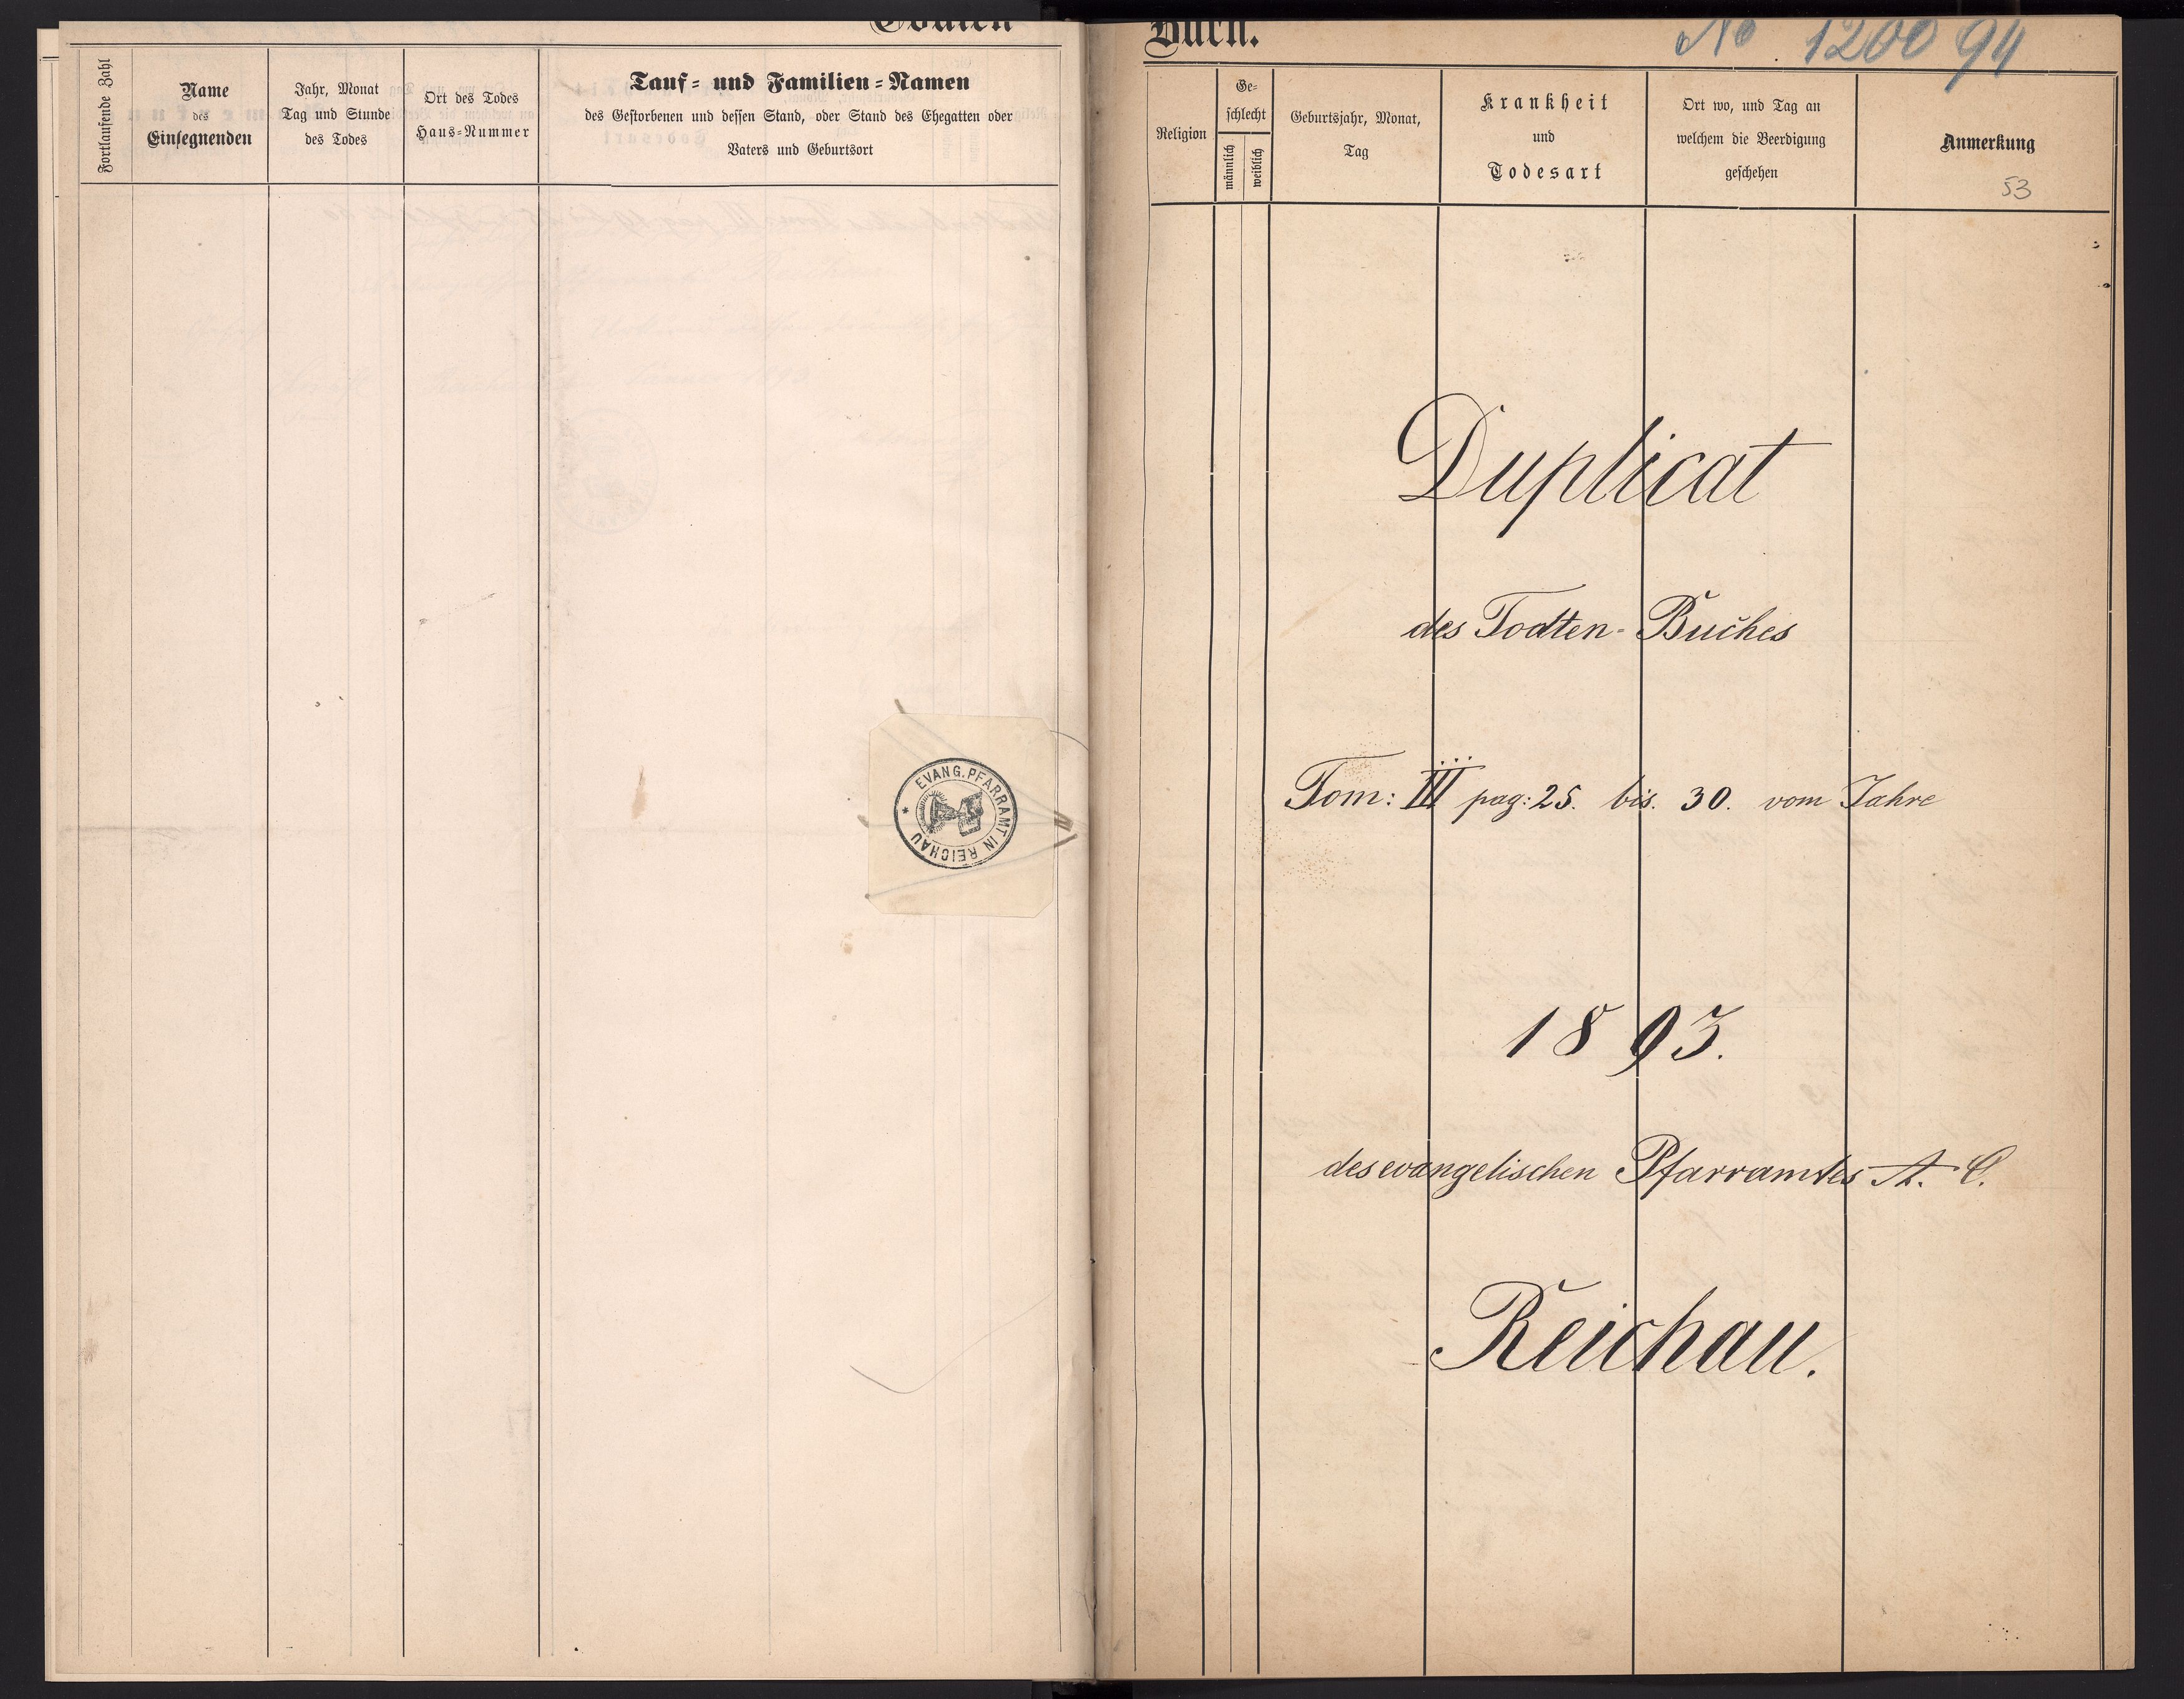 Todten
Fortlaufende Zahl
Name
des
Einsegnenden
Jahr, Monat
Tag und Stunde
des Todes
Ort des Todes
Haus-Nummer
Tauf- und Familien-Namen
des Gestorbenen und dessen Stand, oder Stand des Ehegatten oder
Vaters und Geburtsort
EVANG. PFARRAMT IN REICHAU *
Buch.
No 1200 94
Religion
Ge-
schlecht
männlich
weiblich
Geburtsjahr, Monat,
Tag
Krankheit
und
Todesart
Ort wo, und Tag an
welchem die Beerdigung
geschehen
Anmerkung
53
Duplicat
des Todten-Buches
Tom: III pag: 25. bis. 30. vom Jahre
1893.
des evangelischen Pfarramtes A. C.
Reichau.